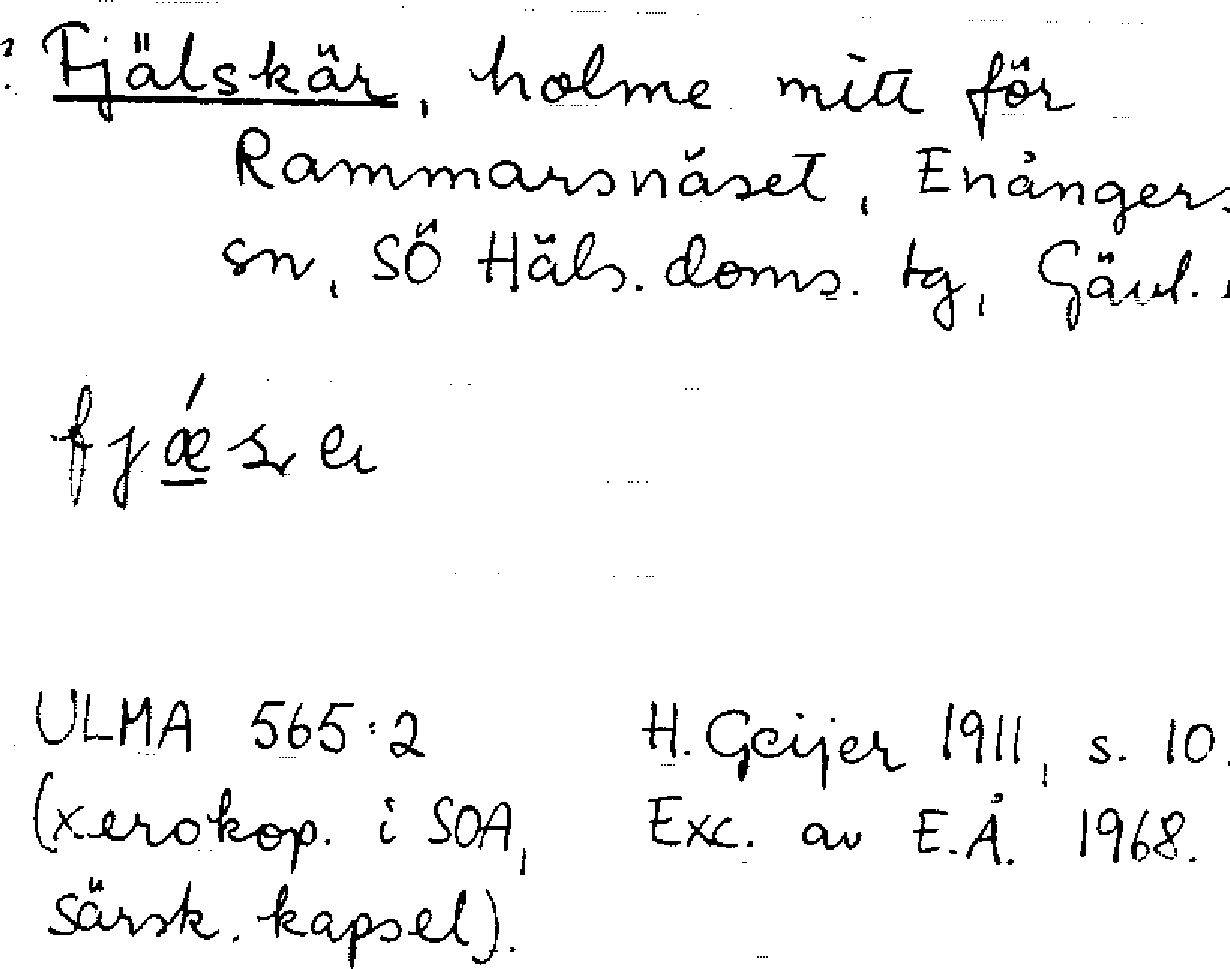 : Fjälskär, holme mitt för
Rammarsnäset, Enångers
sn, SÖ Häls. doms. tg, Gävl.
ULMA 565:2
(xerokop. i SOA,
särsk. kapsel).
H. Geijer 1911, s. 10.
Exc. av E.Å. 1968.